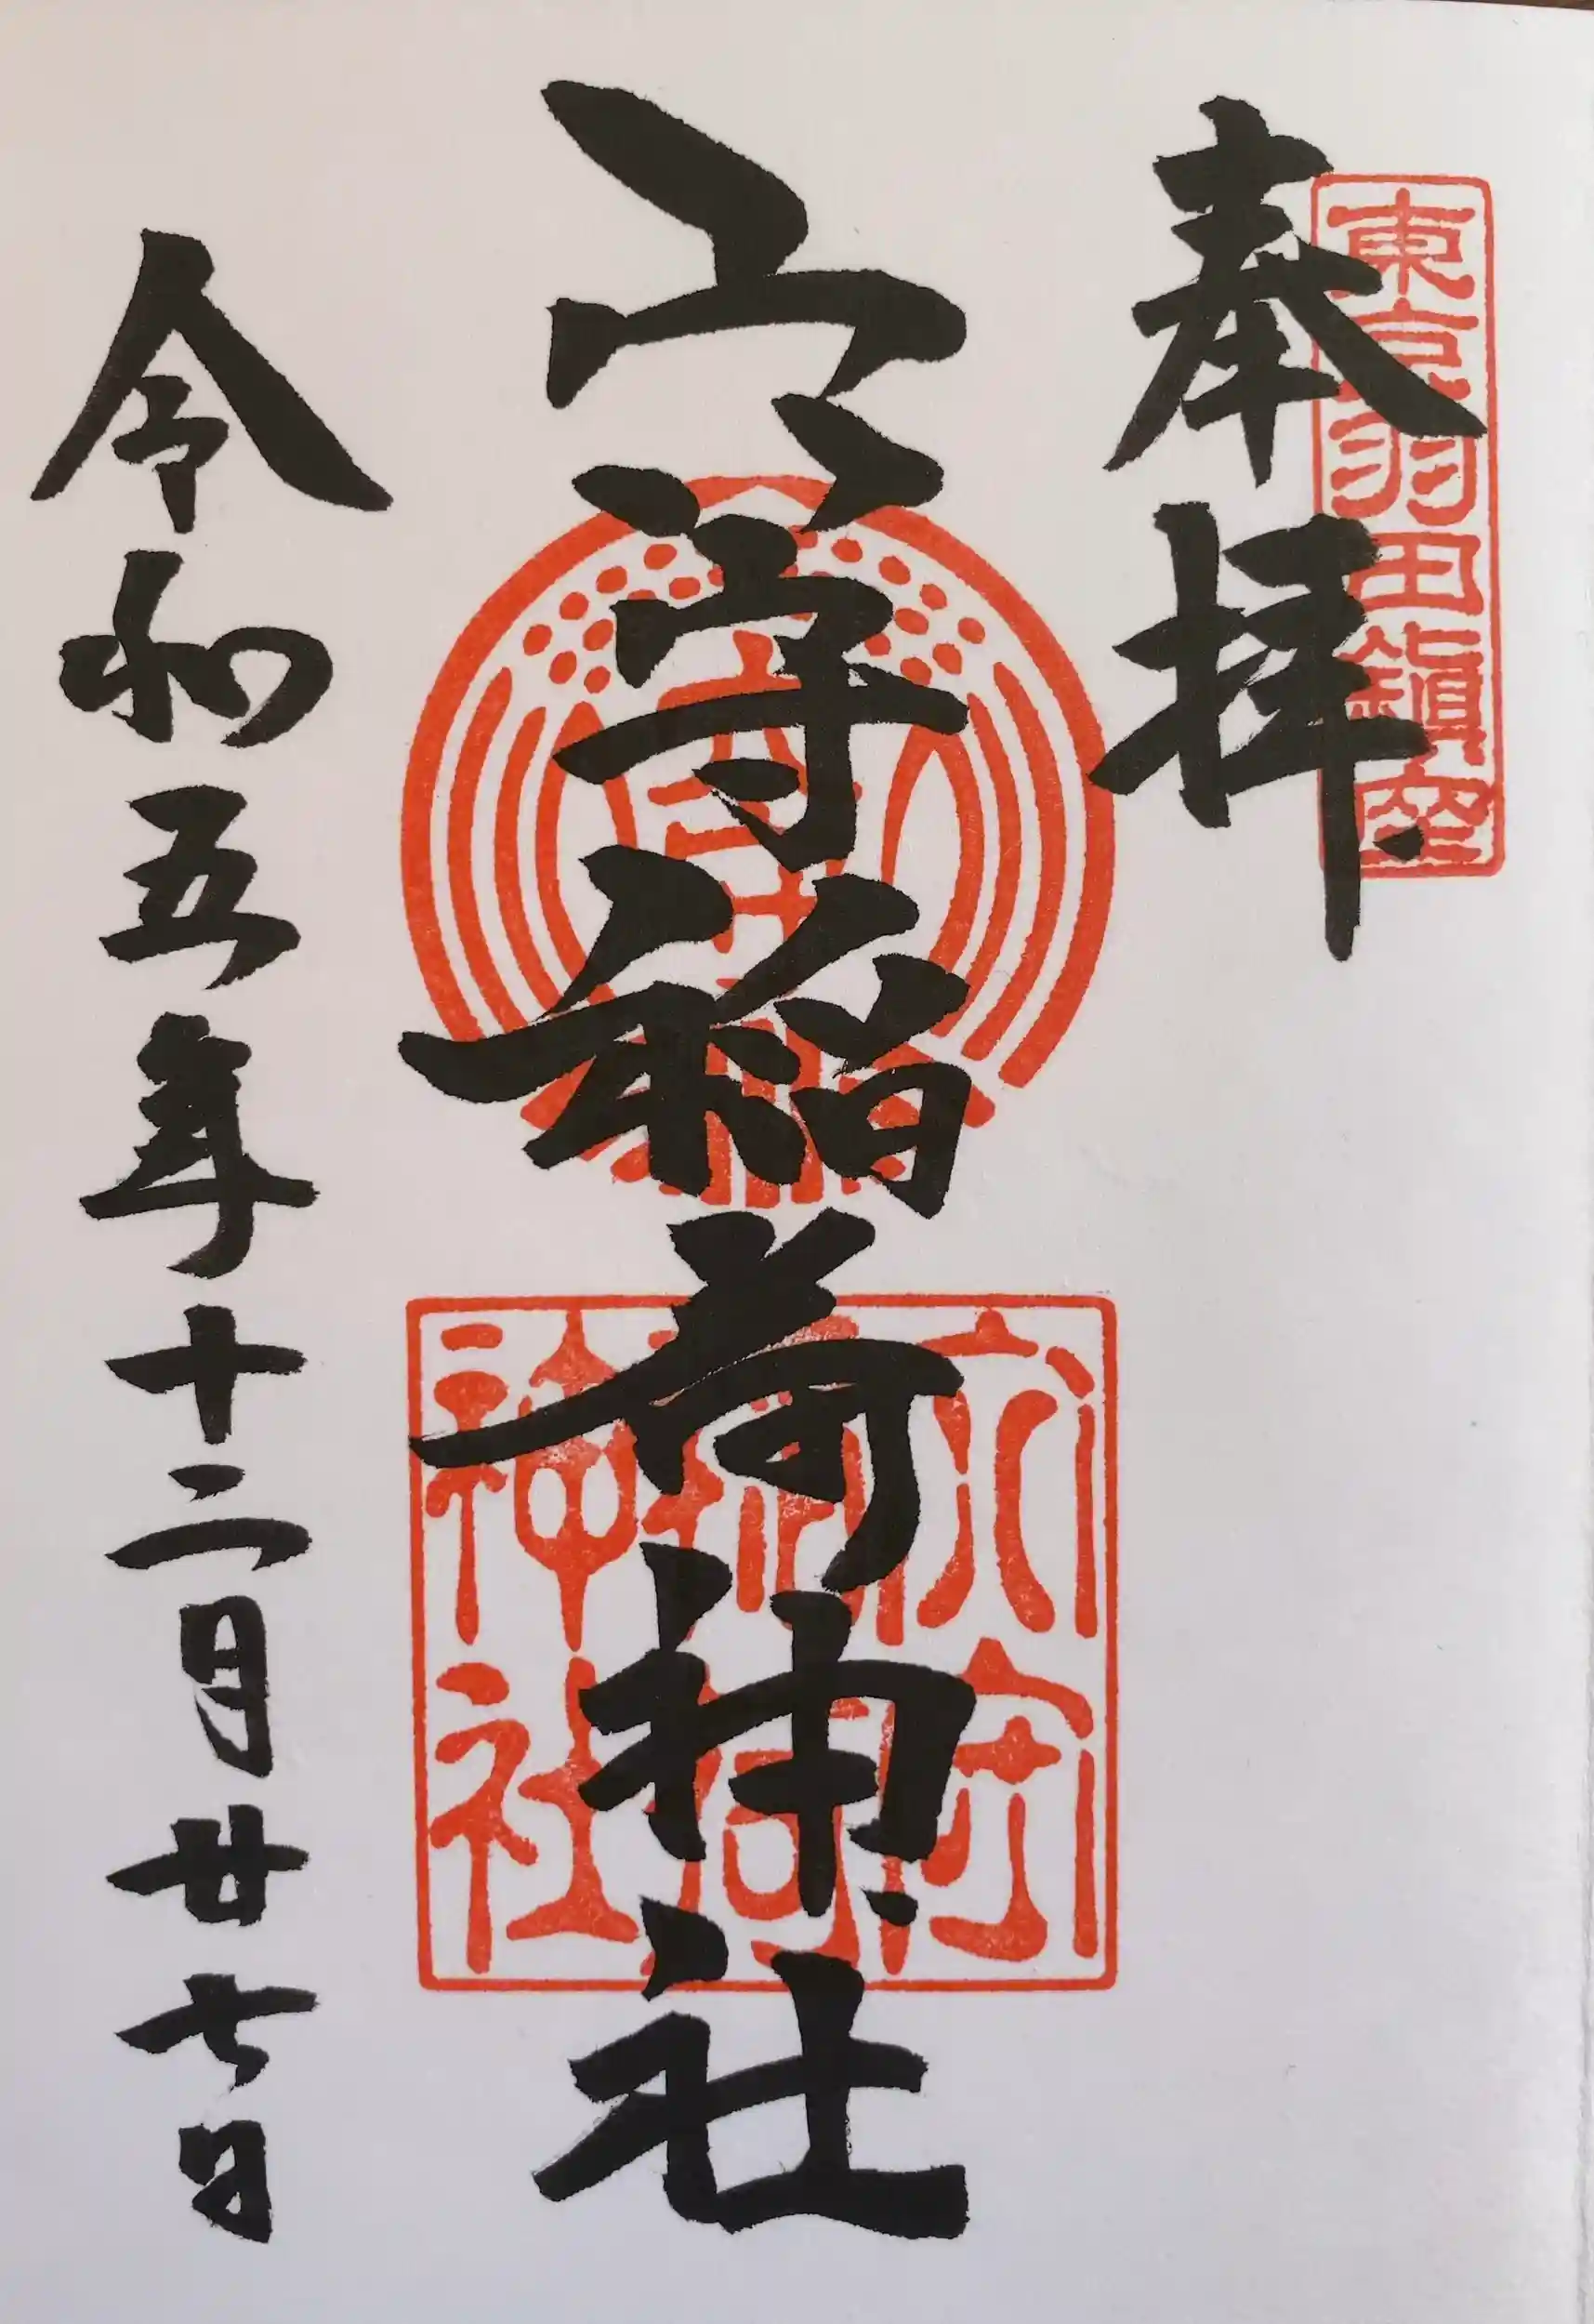 東京羽田鎮座
奉拝
穴守稲荷神社
穴守
稲荷
神社
令和五年十二月廿七日